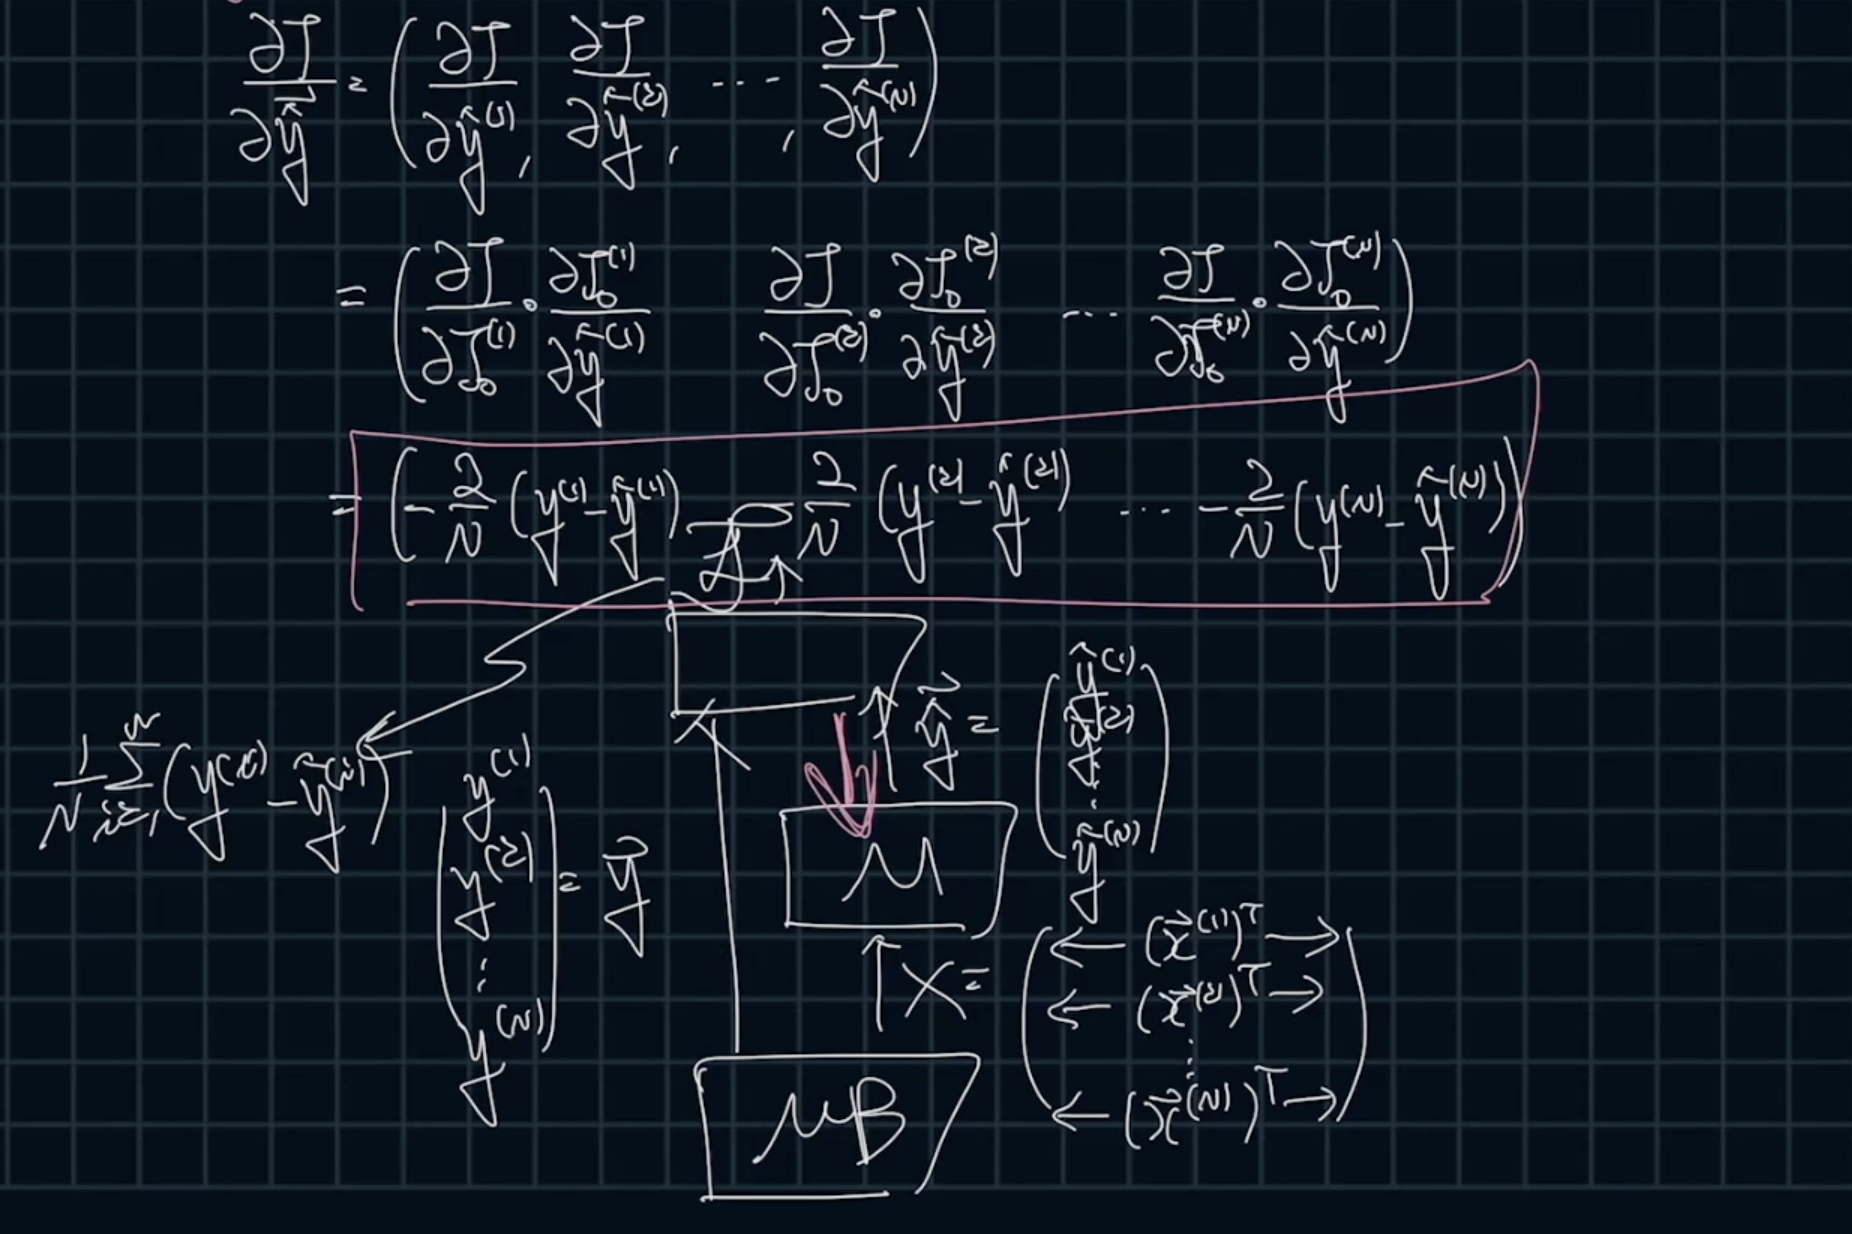 ∂J/∂ŷ⃗ = (∂J/∂ŷ⁽¹⁾, ∂J/∂ŷ⁽²⁾, ⋯ , ∂J/∂ŷ⁽ᴺ⁾)
= (∂J/∂J₀⁽¹⁾ · ∂J₀⁽¹⁾/∂ŷ⁽¹⁾ ∂J/∂J₀⁽²⁾ · ∂J₀⁽²⁾/∂ŷ⁽²⁾ ⋯ ∂J/∂J₀⁽ᴺ⁾ · ∂J₀⁽ᴺ⁾/∂ŷ⁽ᴺ⁾)
= (-2/N (y⁽¹⁾ - ŷ⁽¹⁾) -2/N (y⁽²⁾ - ŷ⁽²⁾) ⋯ -2/N (y⁽ᴺ⁾ - ŷ⁽ᴺ⁾))
1/N Σᵢ₌₁ᴺ (y⁽ⁱ⁾ - ŷ⁽ⁱ⁾)
(y⁽¹⁾ y⁽²⁾ ⋮ y⁽ᴺ⁾) = y⃗
ŷ⃗ = (ŷ⁽¹⁾ ŷ⁽²⁾ ⋮ ŷ⁽ᴺ⁾)
M
X = (← (x⃗⁽¹⁾)ᵀ →
← (x⃗⁽²⁾)ᵀ →
⋮
← (x⃗⁽ᴺ⁾)ᵀ →)
MB